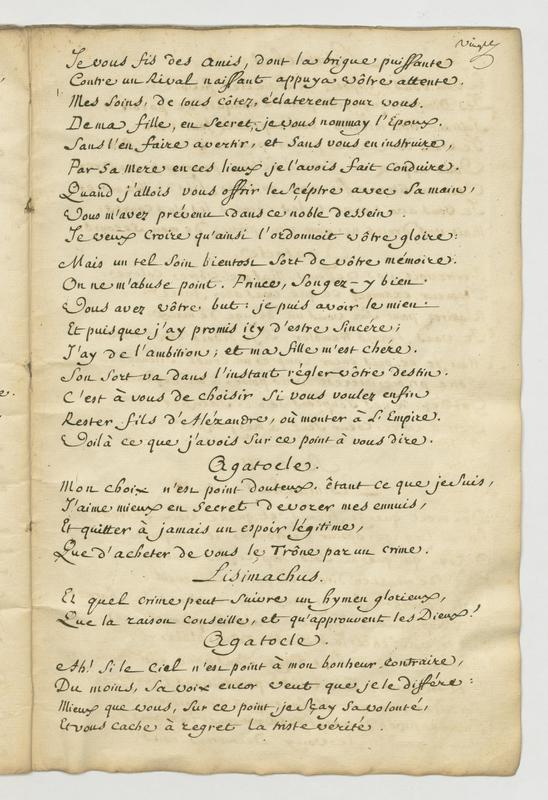 Vingt
Je vous fis des amis, dont la brigue puissante
Contre un Rival naissant appuya vôtre attente.
Mes soins, de tous côtez, éclaterent pour vous.
De ma fille, en Secret, je vous nommay l'Epoux.
Sans l'en faire avertir, et Sans vous en instruire,
Par Sa Mere en ces lieux je l'avois fait Conduire.
Quand j'allois vous offrir le Sceptre avec Sa main,
Vous m'avez prévenu dans ce noble dessein.
Je veux Croire qu'ainsi l'ordonnoit vôtre gloire:
Mais un tel Soin bientost Sort de vôtre mémoire.
On ne m'abuse point. Prince, Songez-y bien.
Vous avez vôtre but: je puis avoir le mien.
Et puis que j'ay promis icy d'estre Sincére;
J'ay de l'ambition; et ma fille m'est chére.
Son Sort va dans l'instant régler vôtre destin.
C'est à vous de choisir Si vous voulez enfin
Rester fils d'Aléxandre, où monter à L'Empire.
Voilà ce que j'avois Sur ce point à vous dire.
Agatocle.
Mon choix n'est point douteux. êtant ce que je Suis,
J'aime mieux en Secret dévorer mes ennuis,
Et quitter à jamais un espoir légitime,
Que d'acheter de vous le Trône par un crime.
Lisimachus.
Et quel crime peut Suivre un hymen glorieux,
Que la raison Conseille, et qu'approuvent les Dieux!
Agatocle.
Ah! Si le Ciel n'est point à mon bonheur Contraire,
Du moins, Sa voix encor veut que je le différe:
Mieux que vous, Sur ce point, je Sçay Sa volonté,
Et vous cache à regret la triste vérité.